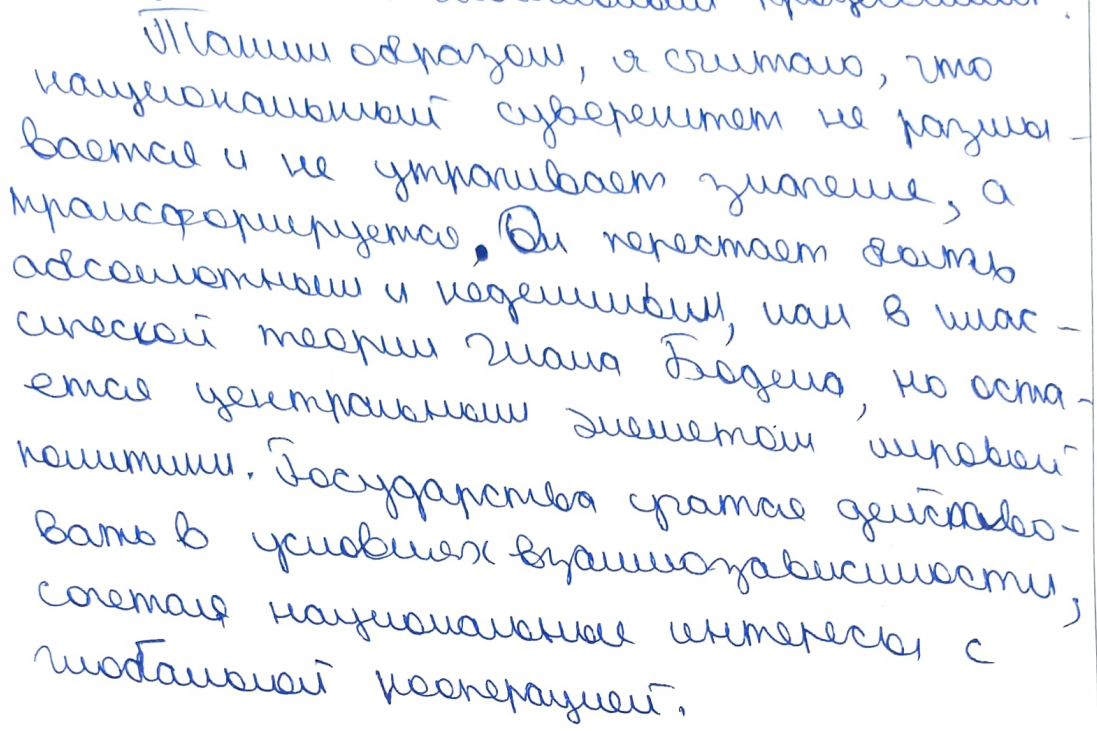 Таким образом, я считаю, что
национальный суверенитет не размы-
вается и не утрачивает значение, а
трансформируется. Он перестает быть
абсолютным и неделимым, как в клас-
сической теории Жана Бодена, но оста-
ется центральным элеметом мировой
политики. Государства учатся действо-
вать в условиях взаимозависимости,
сочетая национальные интересы с
глобальной кооперацией.